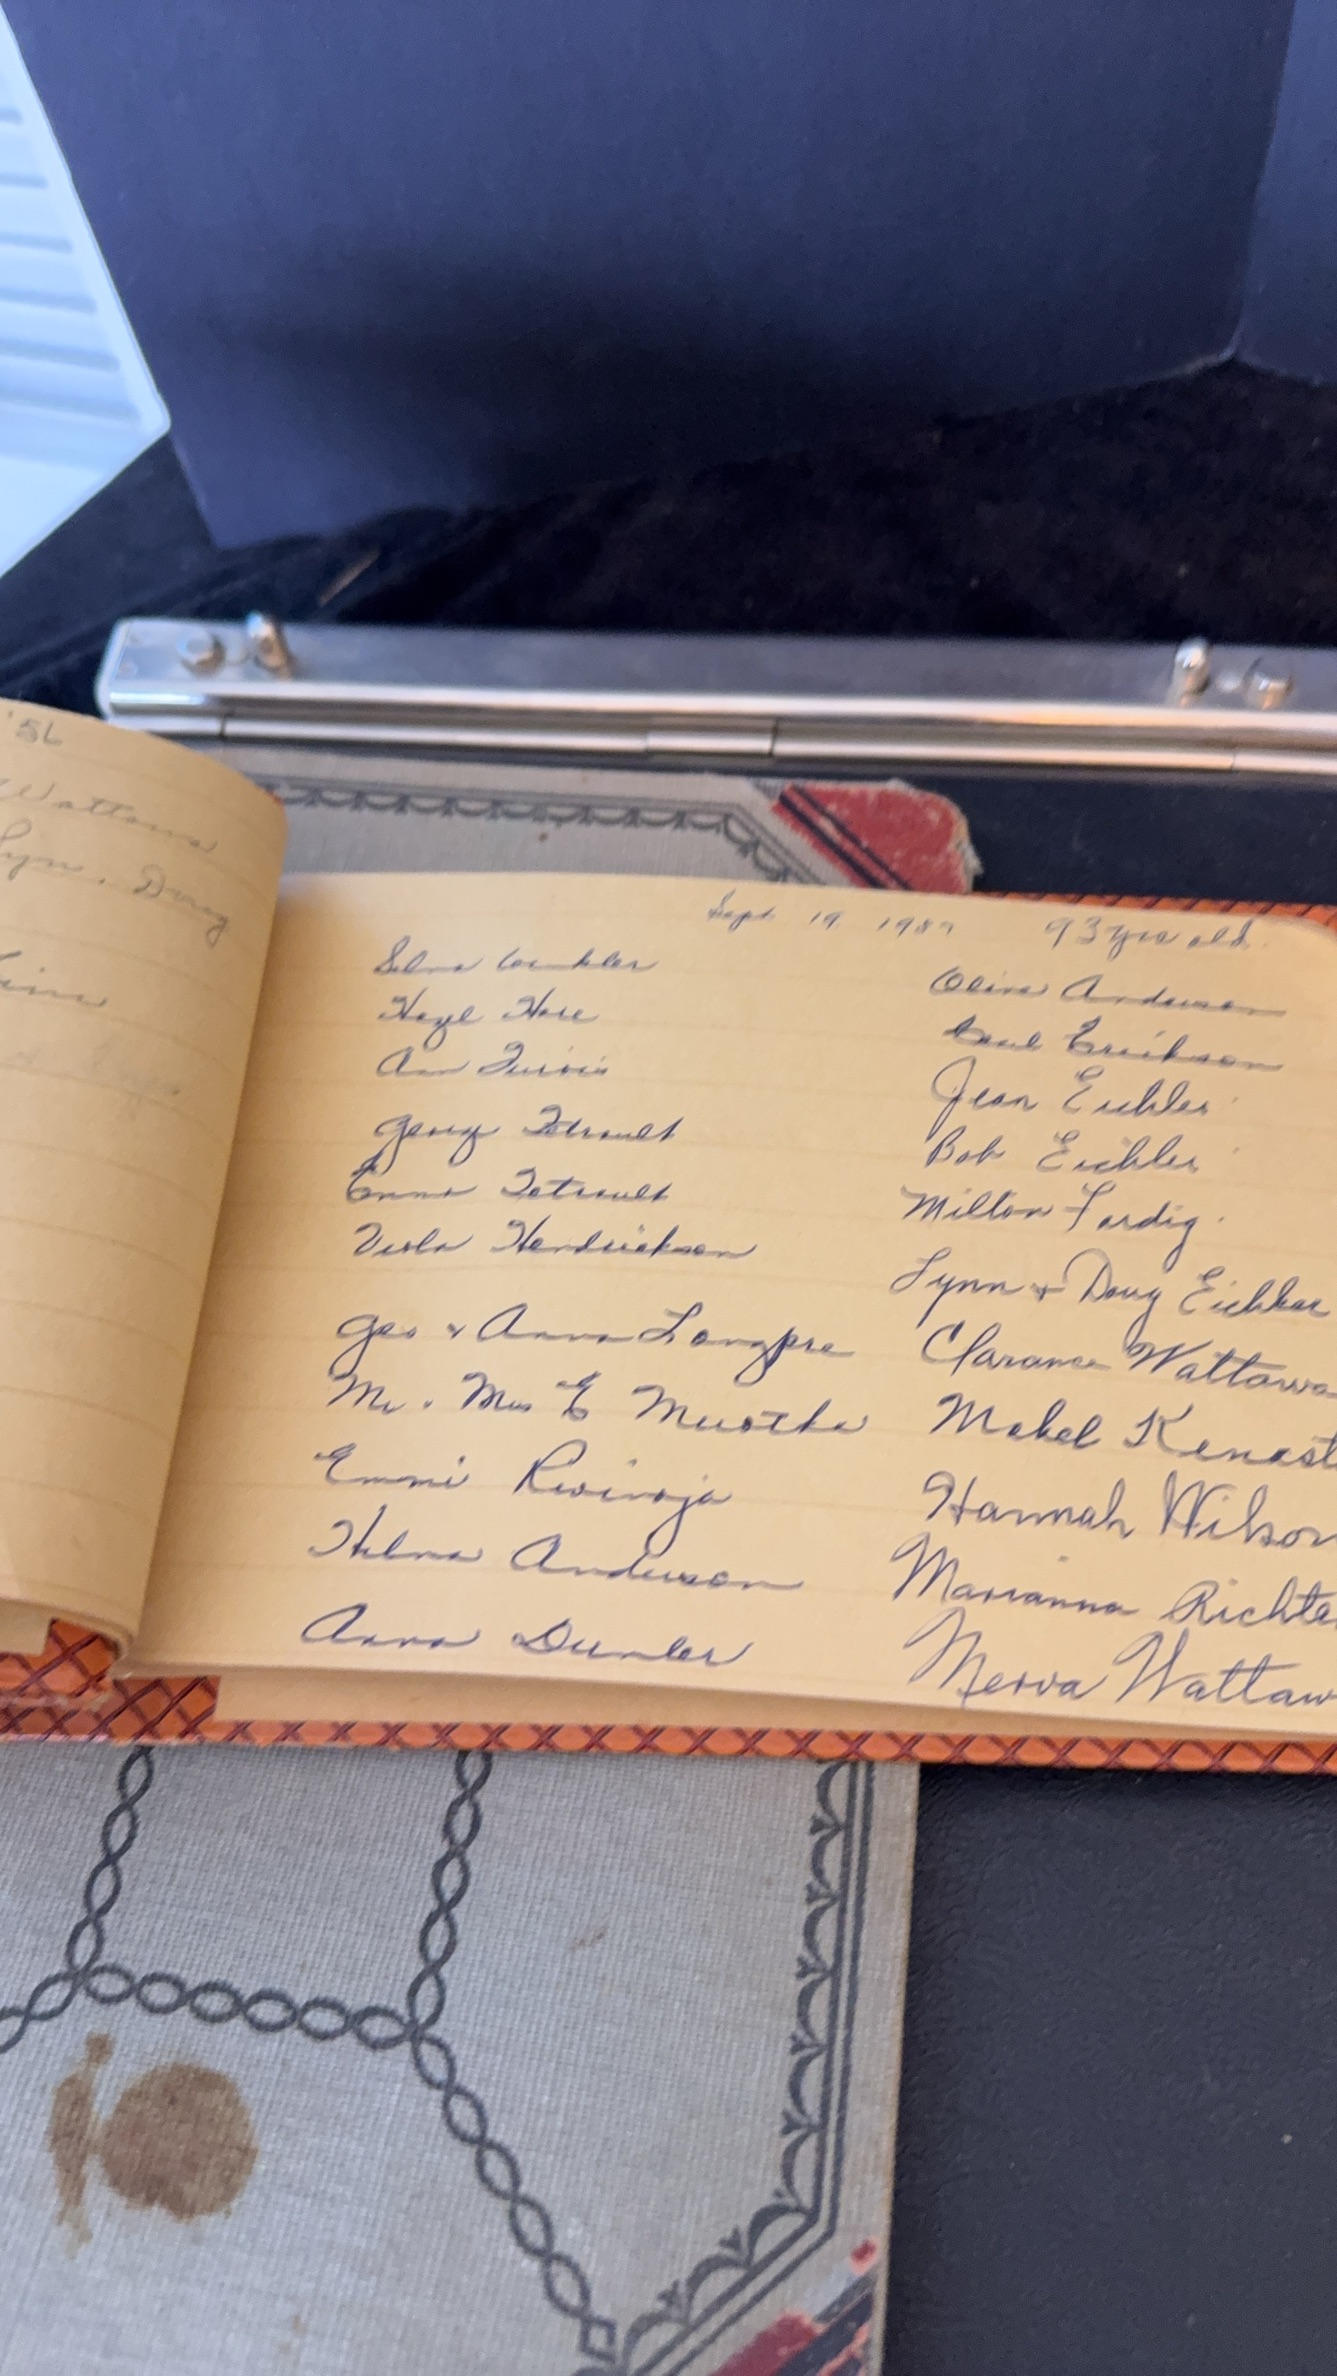 '56
Wattawa
Lyn. Doug
Sept 19 1987 93 yrs old.
Selma Winkler
Hazel Hore
Ann
Tetrault
Emma Tetrault
Viola Hendrickson
Geo & Anna Longpre
Mr. Mrs E
Emmi
Anderson
Anna
Olive Anderson
Erickson
Jean Eichler
Bob Eichler
Milton Fardig
Lynn & Doug Eichler
Clarance Wattawa
Mabel Kenast
Hannah Wilson
Marianna Richte
Nerva Wattaw